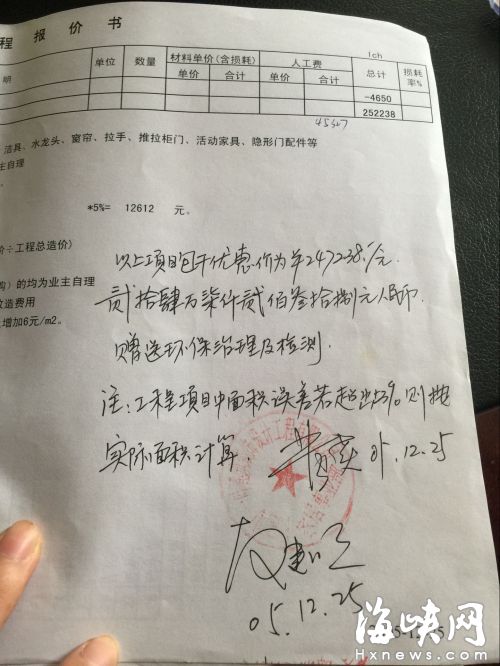 程 报 价 书
明 单位 数量 材料单价(含损耗) 人工费 lch 总计 损耗率%
单价 合计 单价 合计
-4650
252238
洁具、水龙头、窗帘、拉手、推拉柜门、活动家具、隐形门配件等
主自理
*5%= 12612 元。
价÷工程总造价)
以上项目包干优惠价为￥247238./元.
购）的均为业主自理
贰拾肆万柒仟贰佰叁拾捌元人民币.
改造费用
增加6元/m2。
赠送环保治理及检测.
注:工程项目中面积误差若超出3%则按
实际面积计算.
05.12.25
05.12.25
海峡网
Hxnews.com